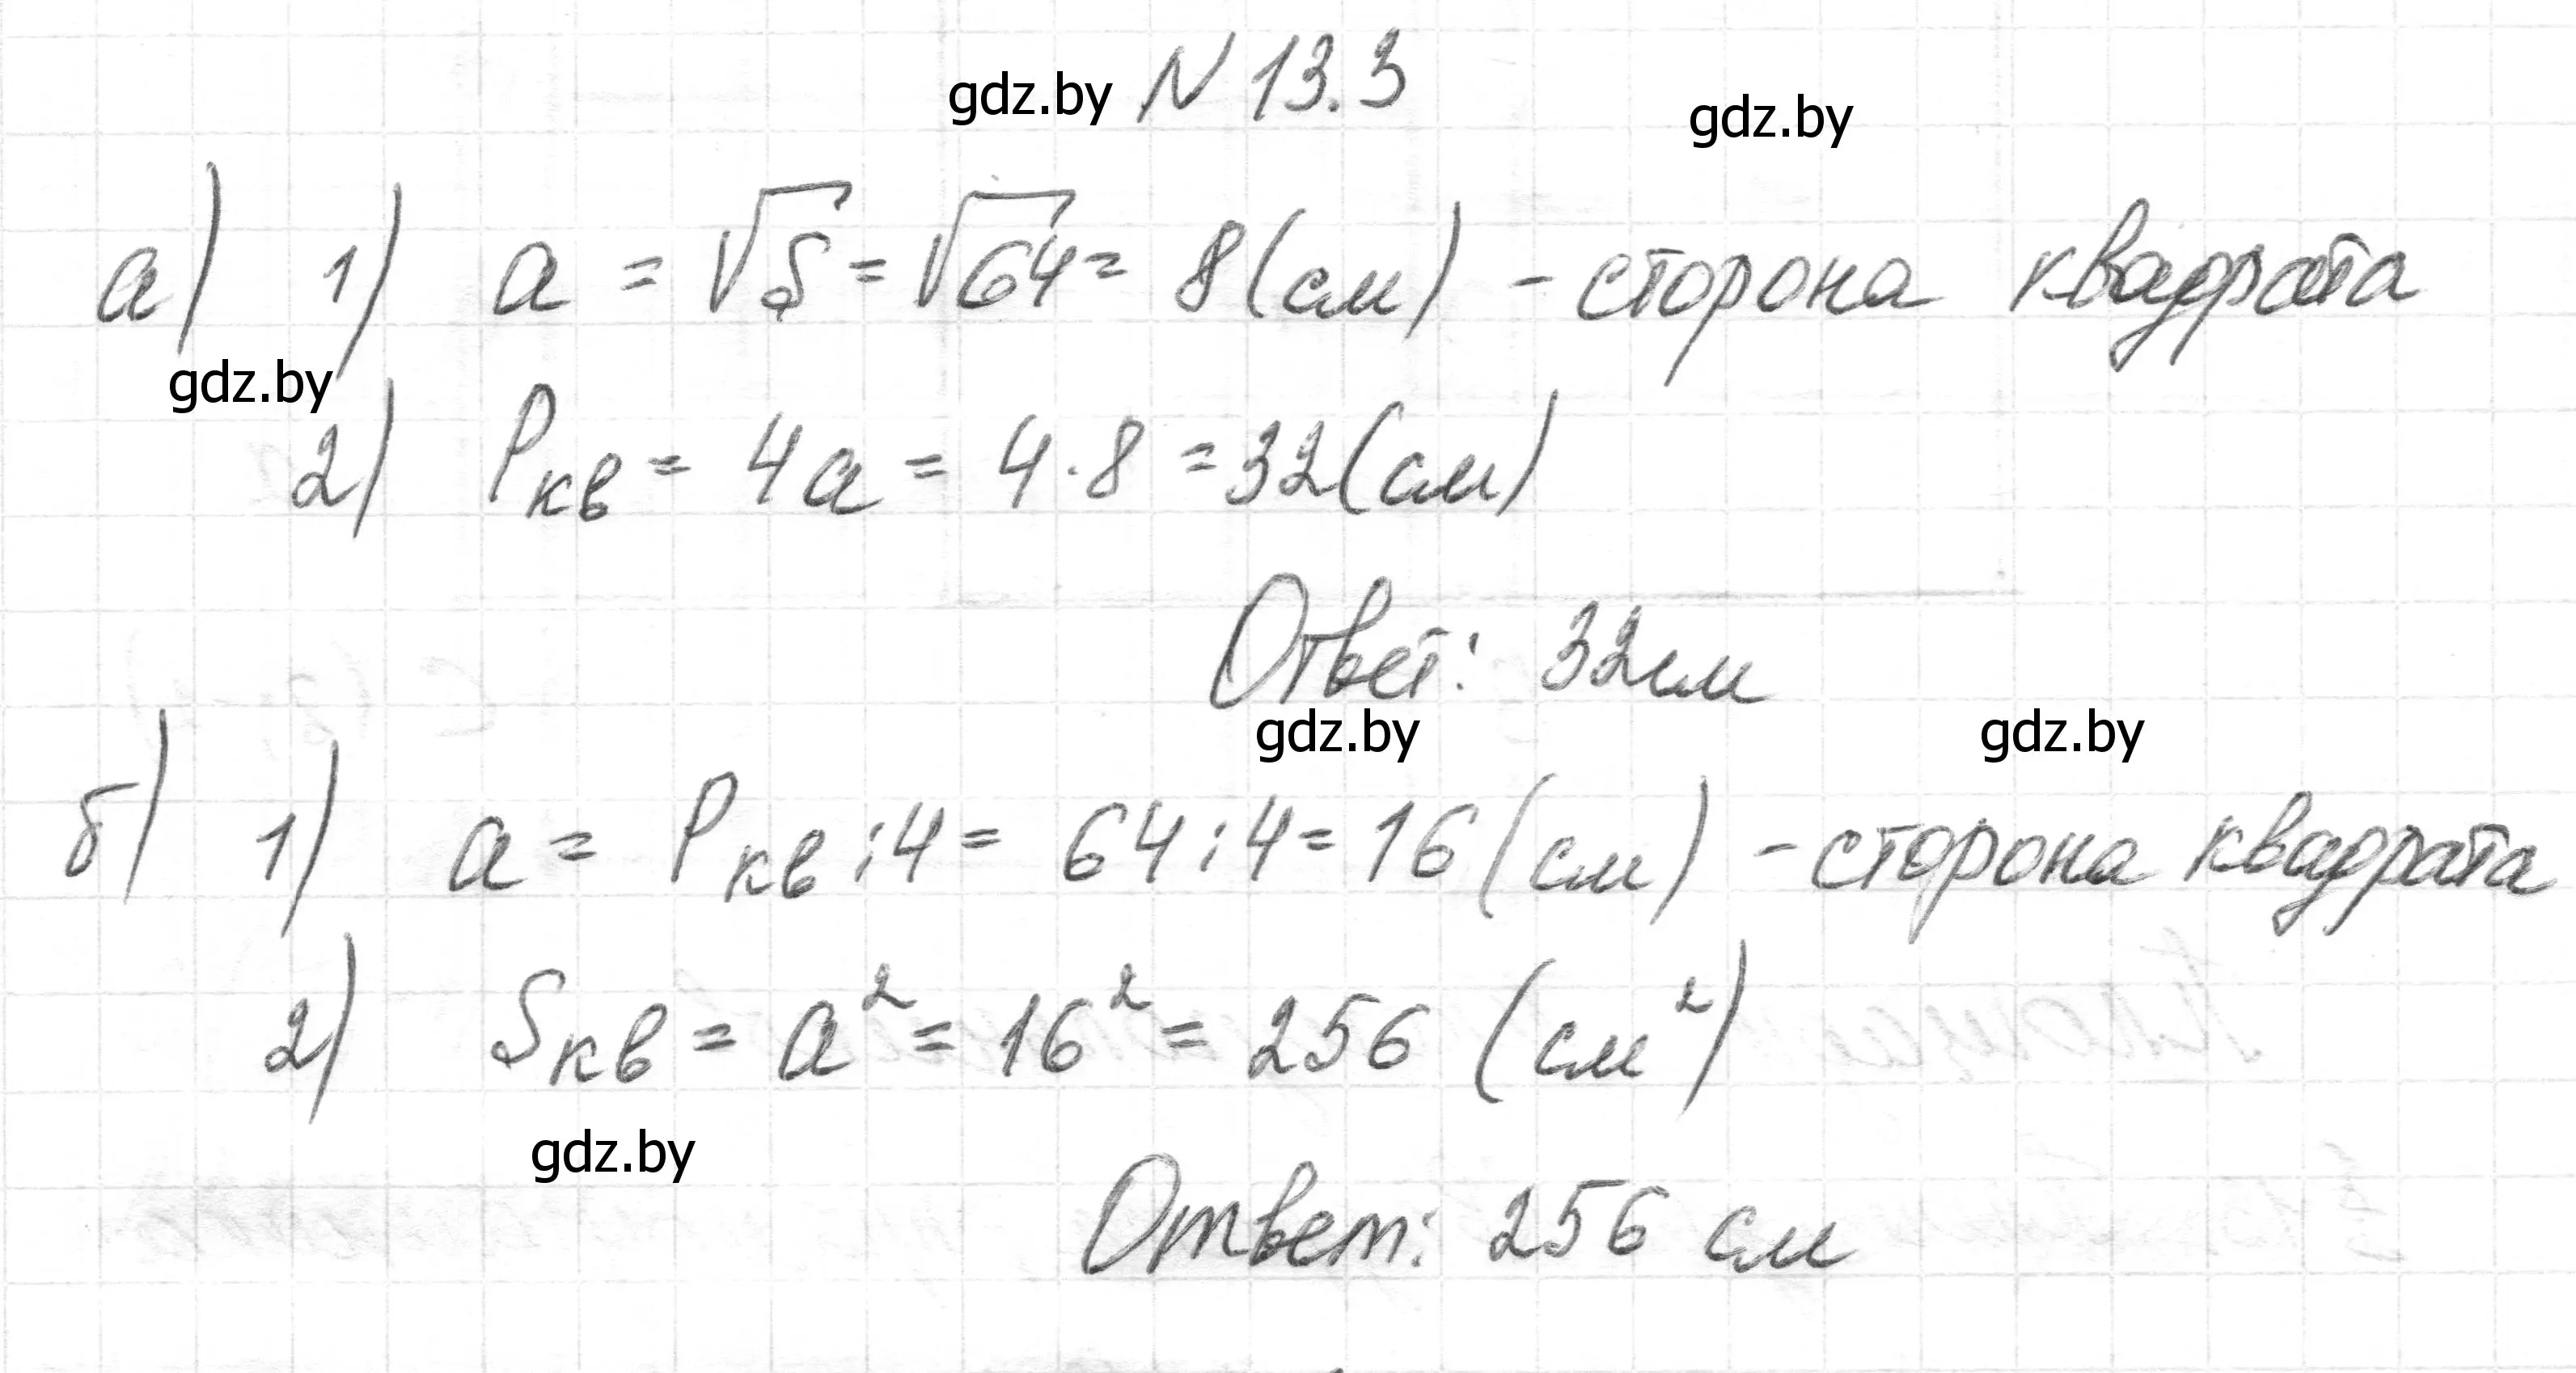 gdz.by N 13.3 gdz.by
а) 1) a = √S = √64 = 8 (см) - сторона квадрата
gdz.by
2) Pкв = 4a = 4 · 8 = 32 (см)
Ответ: 32см
gdz.by gdz.by
б) 1) a = Pкв : 4 = 64 : 4 = 16 (см) - сторона квадрата
2) Sкв = a² = 16² = 256 (см²)
gdz.by
Ответ: 256 см